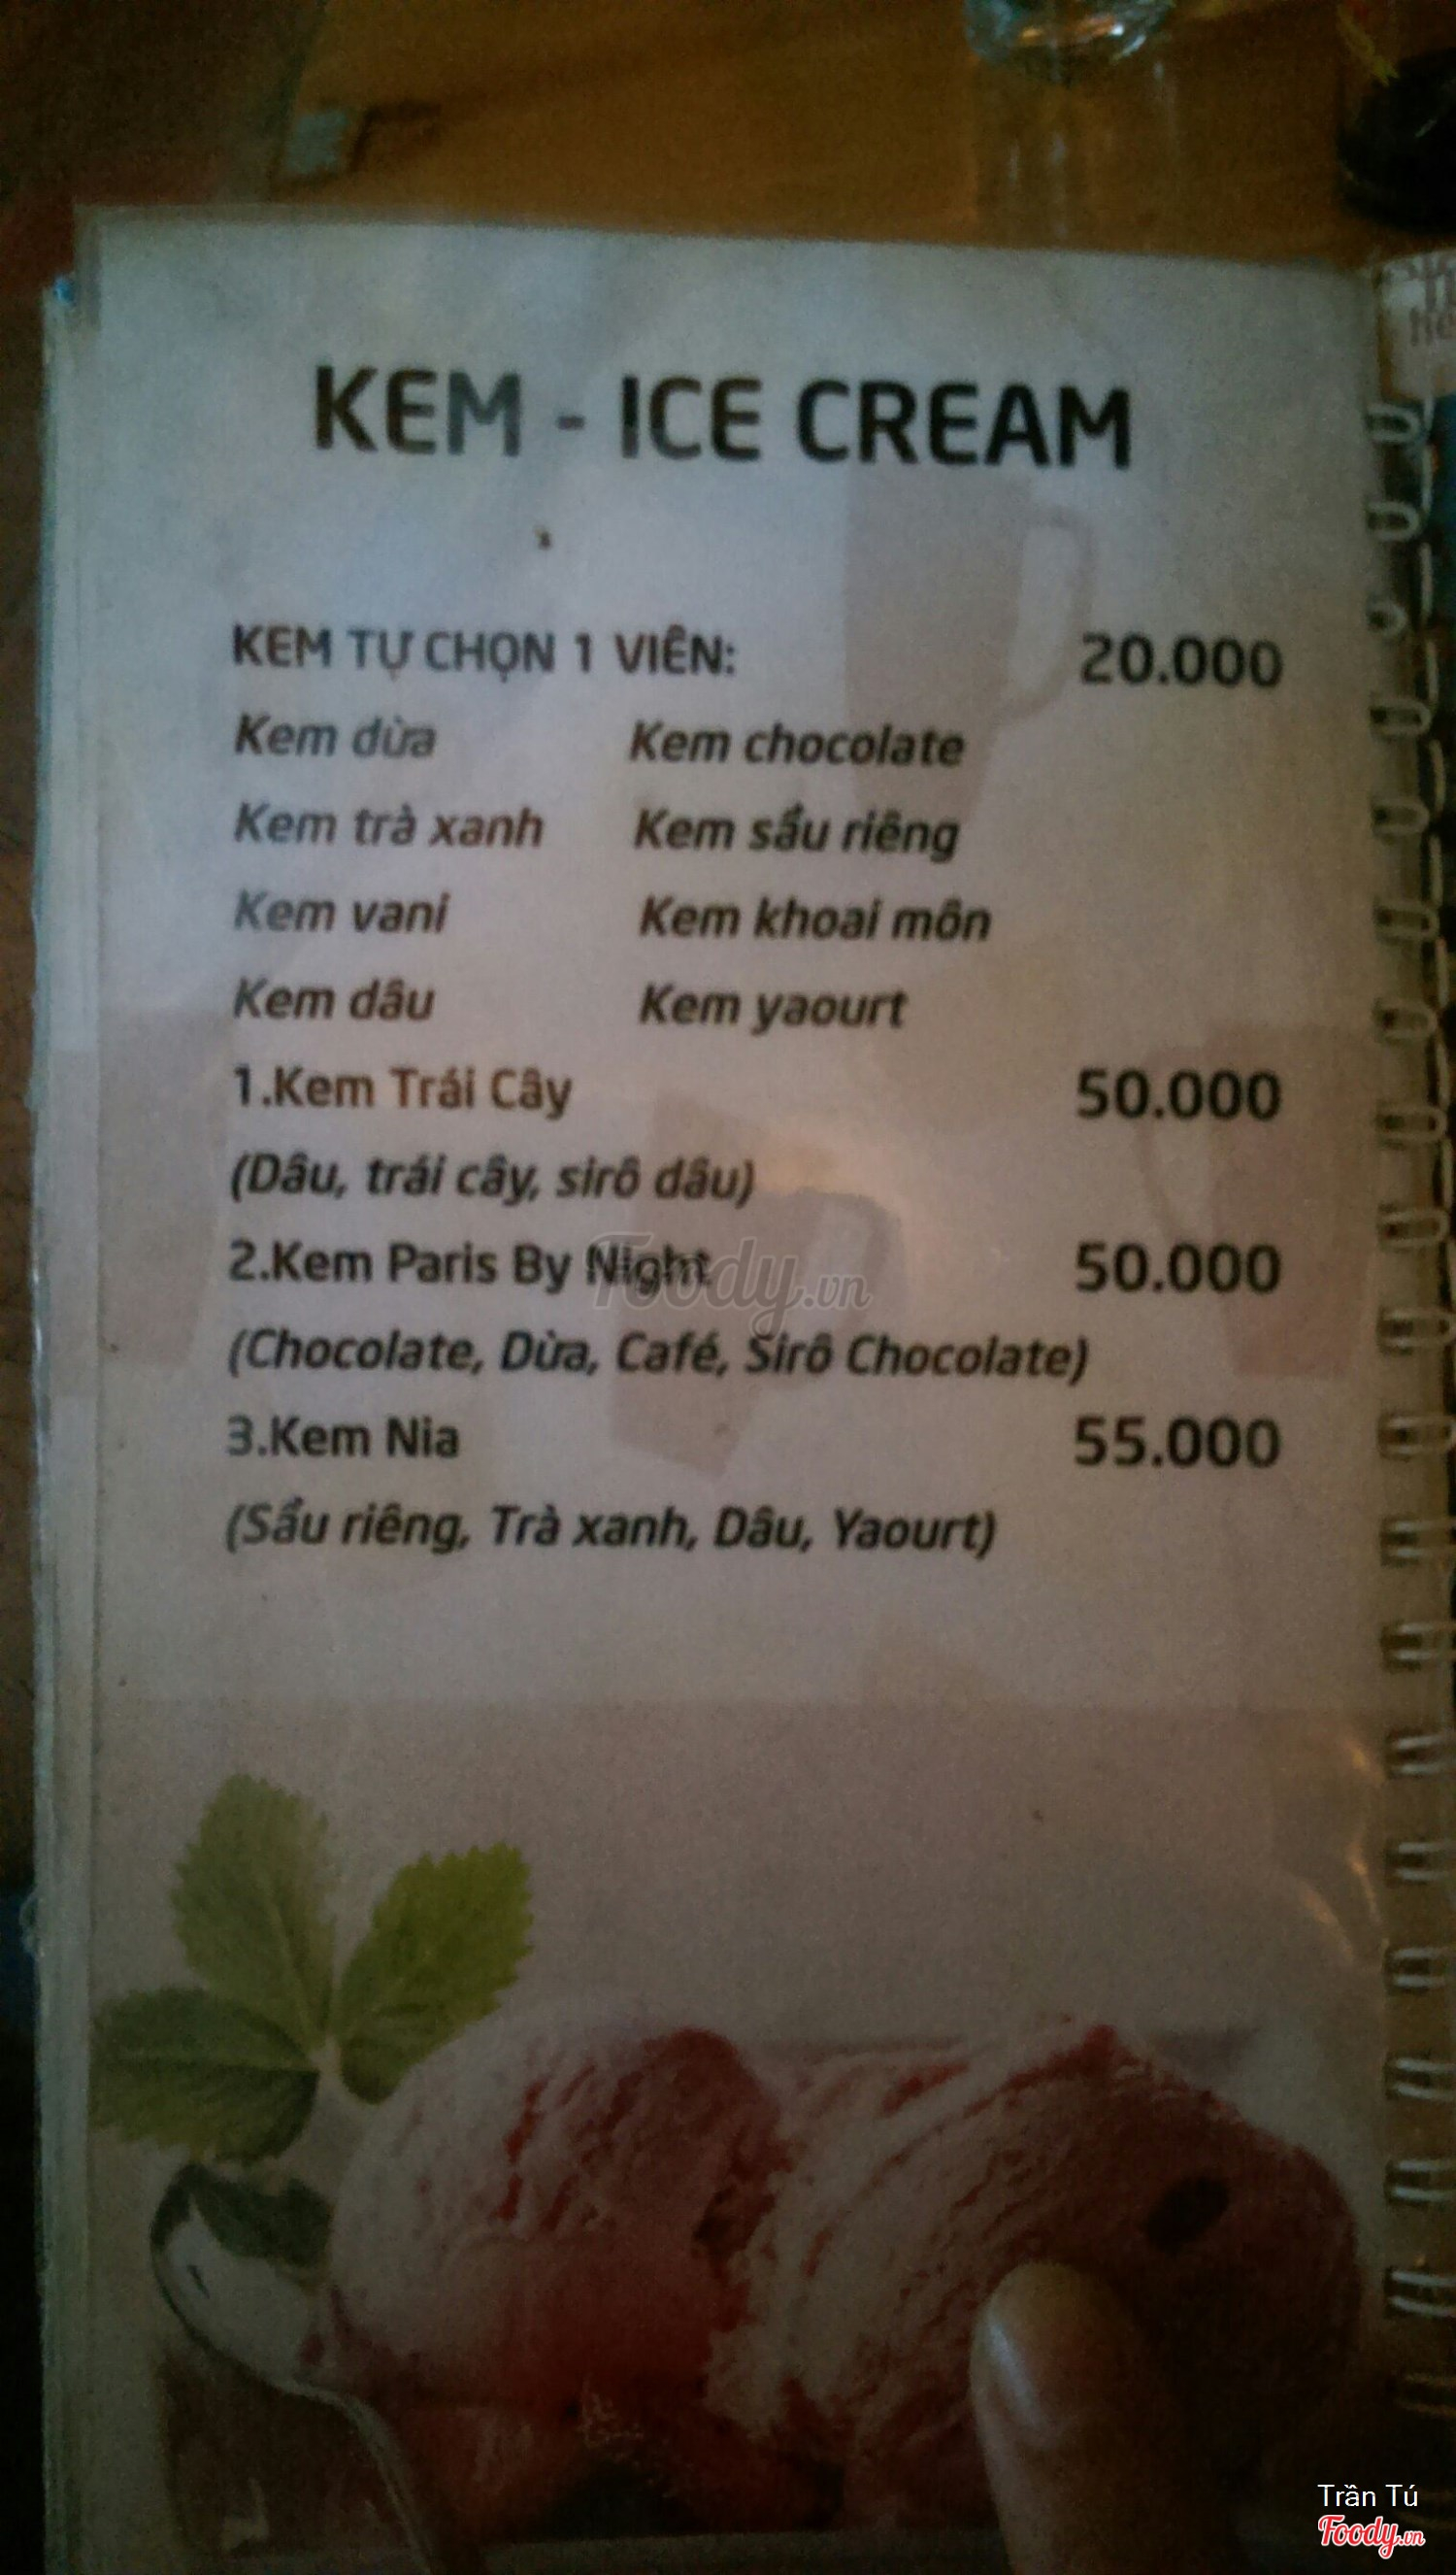 KEM - ICE CREAM
KEM TỰ CHỌN 1 VIÊN: 20.000
Kem dừa Kem chocolate
Kem trà xanh Kem sầu riêng
Kem vani Kem khoai môn
Kem dâu Kem yaourt
1.Kem Trái Cây 50.000
(Dâu, trái cây, sirô dâu)
2.Kem Paris By Night 50.000
Foody.vn
(Chocolate, Dừa, Café, Sirô Chocolate)
3.Kem Nia 55.000
(Sầu riêng, Trà xanh, Dâu, Yaourt)
Trần Tú
Foody.vn